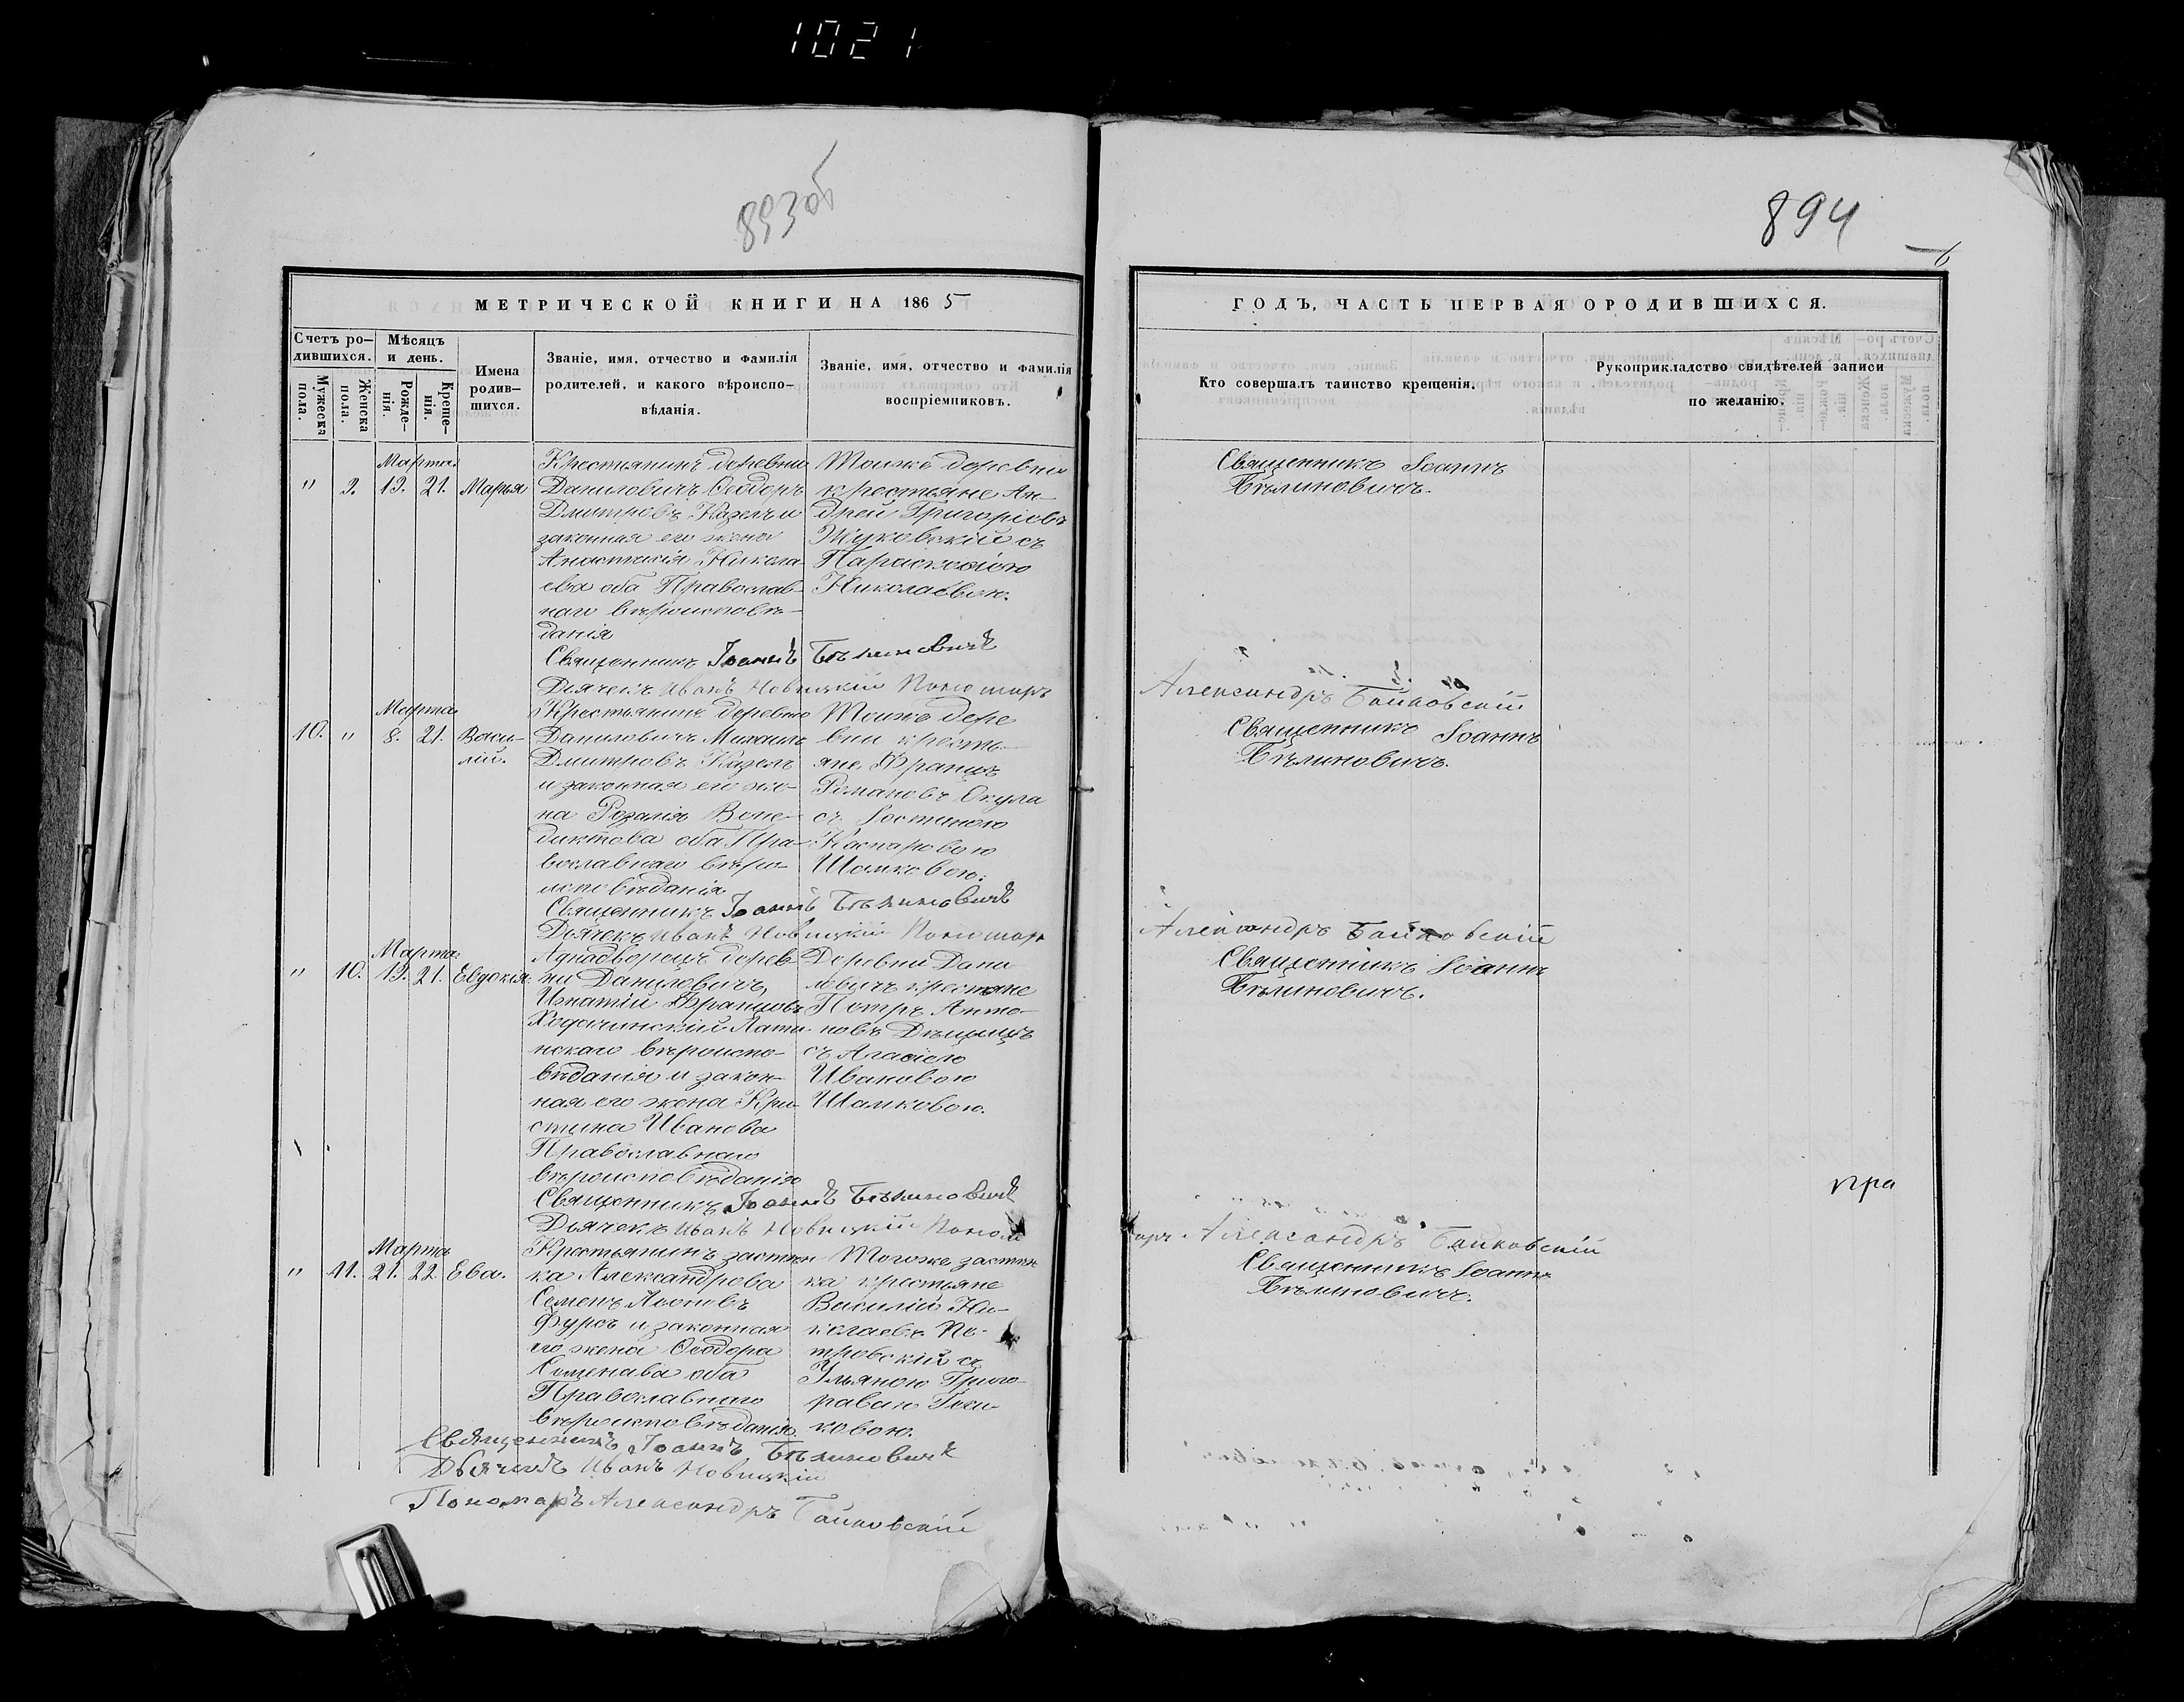 1021
893об
894
6
МЕТРИЧЕСКОЙ КНИГИ НА 1865
Счетъ ро-
дившихся.
Мужеска
пола.
Женска
пола.
Мѣсяцъ
и день.
Рожде-
нія.
Креще-
нія.
Имена
родив-
шихся.
Званіе, имя, отчество и фамилія
родителей, и какого вѣроиспо-
вѣданія.
Званіе, имя, отчество и фамилія
воспріемниковъ.
ГОДЪ, ЧАСТЬ ПЕРВАЯ О РОДИВШИХСЯ.
Кто совершалъ таинство крещенія.
Рукоприкладство свидѣтелей записи
по желанію.
Марта
" 9. 19. 21. Марья
Крестьянинъ деревни
Даниловичъ Ѳеодоръ
Дмитровъ Казелъ и
законная его жена
Анастасія Никола-
ева оба Православ-
наго вѣроисповѣ-
данія
Тоиже деревни
крестьяне Ан-
дрей Григоріевъ
Жуковскій съ
Параскевіею
Николаевою.
Священникъ Іоаннъ
Бѣлиновичъ.
Священникъ Іоаннъ Бѣлиновичъ
Дьячекъ Иванъ Новицкій Пономаръ Александръ Байковскій
Марта
10. " 8. 21. Васи-
лій.
Крестьянинъ деревни
Даниловичъ Михаилъ
Дмитровъ Казелъ
и законная его же-
на Розалія Вене-
диктова оба Пра-
вославнаго вѣро-
исповѣданія
Тоиже дере
вни кресть-
яне, Францъ
Романовъ Окула
съ Іостиною
Каспаровою
Шамковою.
Священникъ Іоаннъ
Бѣлиновичъ.
Священникъ Іоаннъ Бѣлиновичъ
Дьячекъ Иванъ Новицкій Пономаръ Александръ Байковскій
Марта
" 10. 19. 21. Евдокія.
Аднадворецъ дерев-
ни Даниловичъ,
Игнатій Францовъ
Ходочинскій Лати-
нскаго вѣроиспо-
вѣданія и закон-
ная его жена Кри-
стина Иванова
Православнаго
вѣроисповѣданія
Деревни Дани
ловичъ крестяне
Петръ Анто-
новъ Дѣщицъ
съ Агафіею
Ивановою
Шамковою.
Священникъ Іоаннъ
Бѣлиновичъ.
пра
Священникъ Іоаннъ Бѣлиновичъ
Дьячекъ Иванъ Новицкій Пономаръ Александръ Байковскій
Марта
" 11. 21. 22. Ева.
Крестьянинъ застѣн-
ка Александрова
Семенъ Леоновъ
Фурсъ и законная
его жена Ѳеодора
Семенава оба
Православнаго
вѣроисповѣданія
Тогоже застѣн
ка крестьяне
Василій Ни-
колаевъ Пе-
тровскій съ
Ульяною Григо-
раваю Геги-
ковою.
Священникъ Іоаннъ
Бѣлиновичъ.
Священникъ Іоаннъ Бѣлиновичъ
Дьячекъ Иванъ Новицкій
Пономаръ Александръ Байковскій